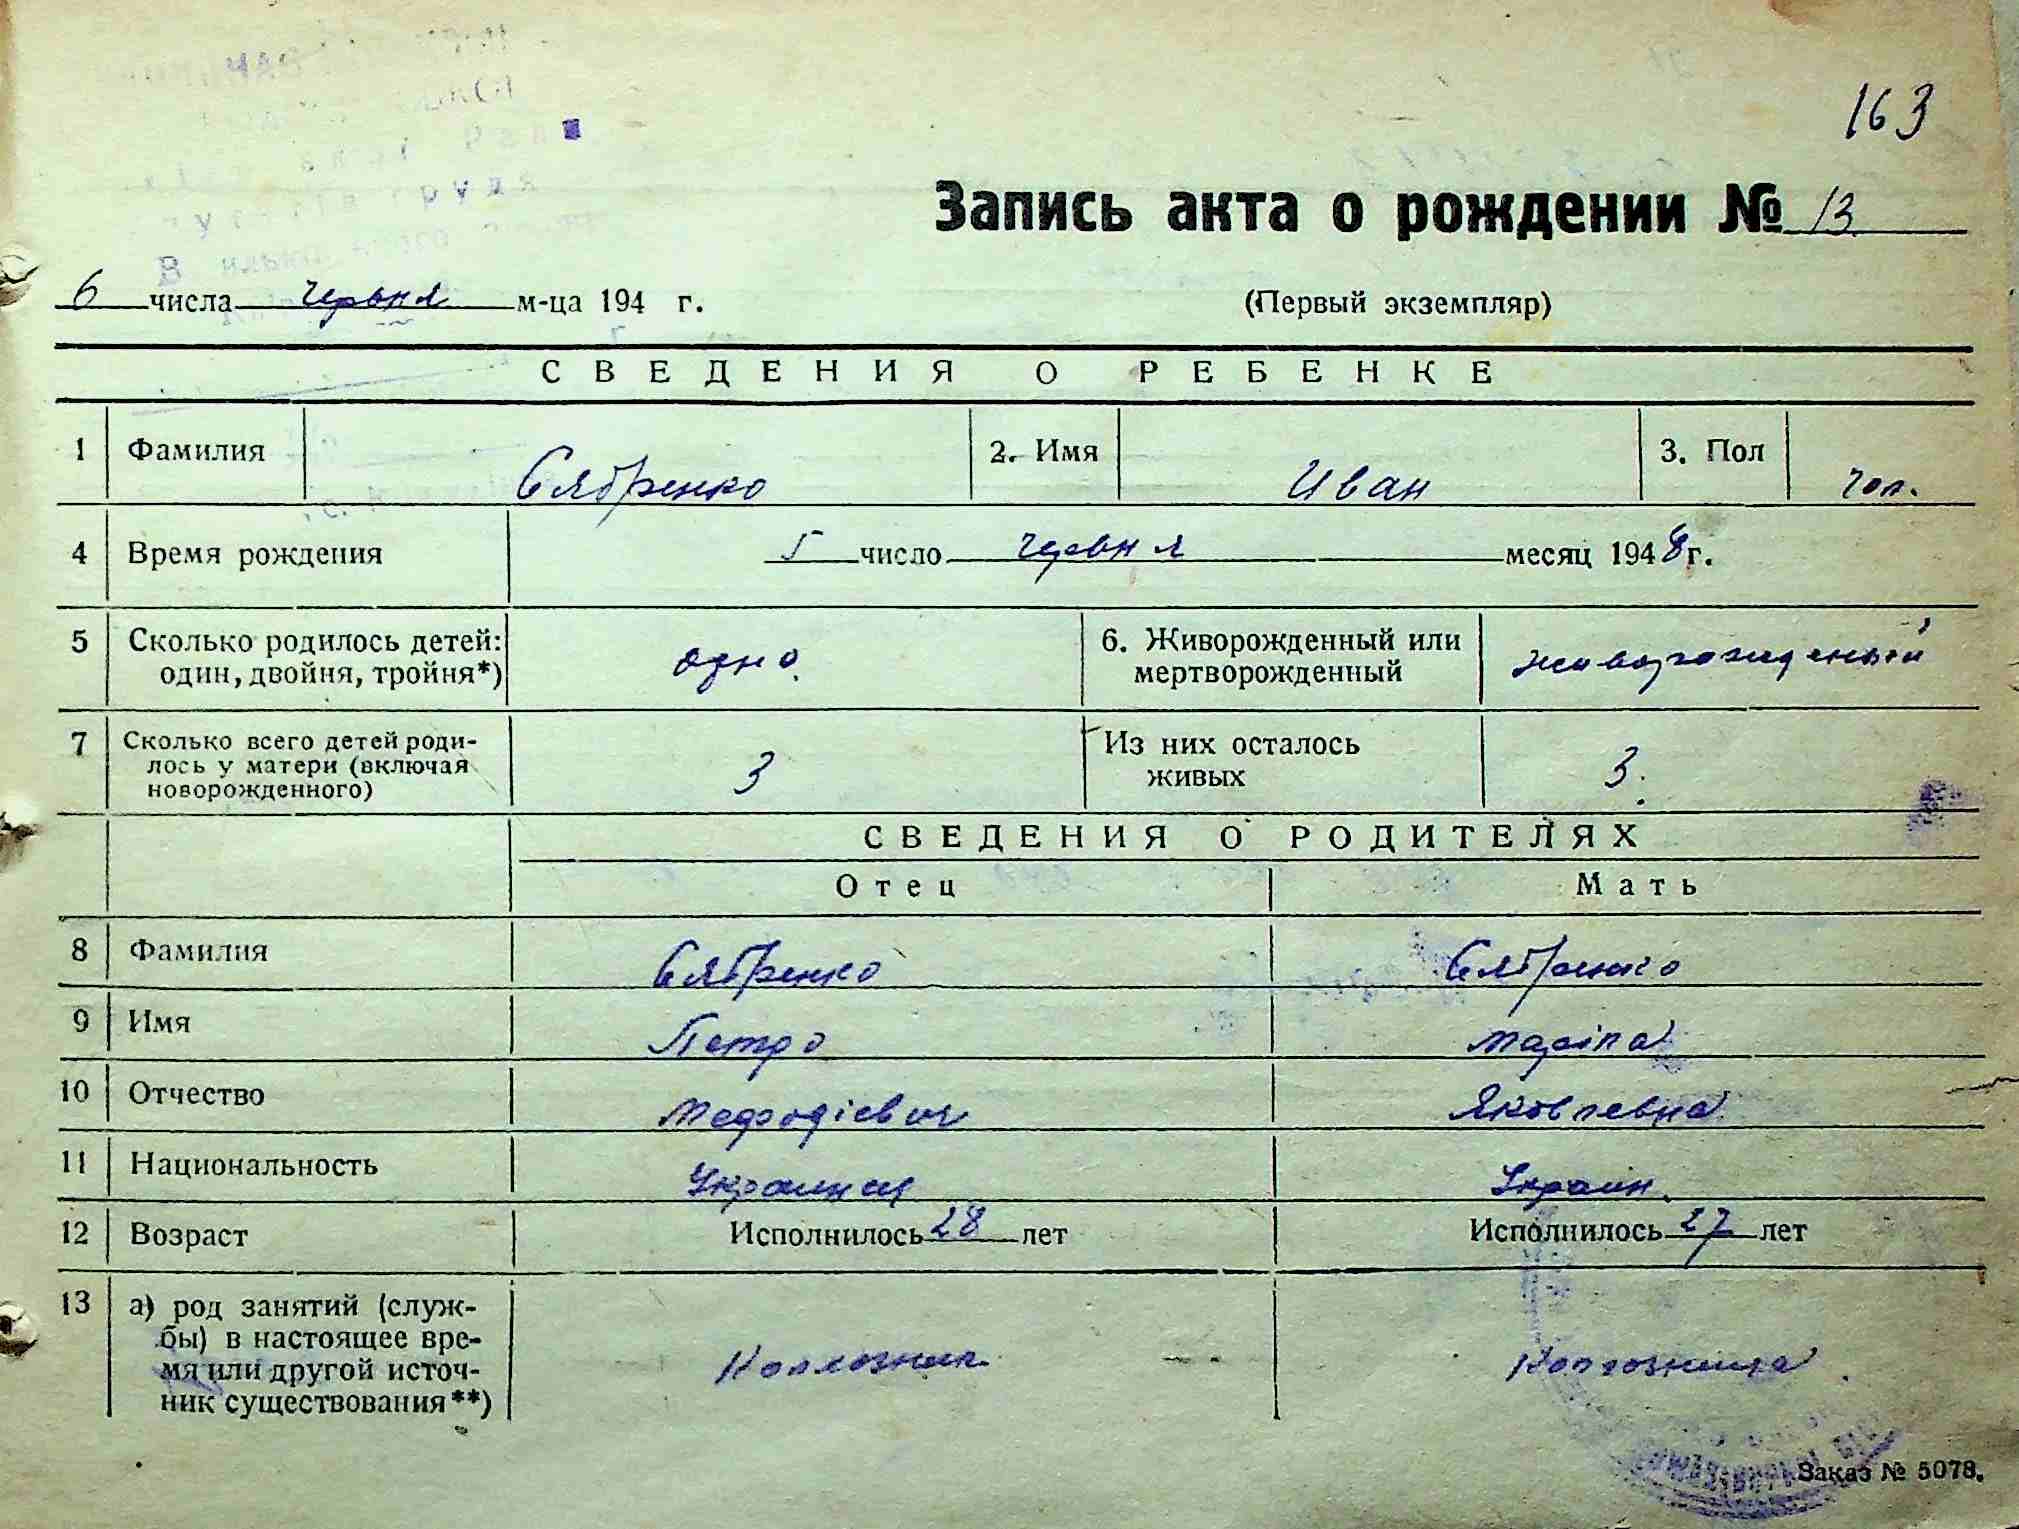 163
Запись акта о рождении № 13
6 числа червня м-ца 194 г. (Первый экземпляр)
СВЕДЕНИЯ О РЕБЕНКЕ
1 Фамилия Сябренко 2. Имя Иван 3. Пол чол.
4 Время рождения 5 число червня месяц 1948 г.
5 Сколько родилось детей: одно. 6. Живорожденный или живорожденый
один, двойня, тройня*) мертворожденный
7 Сколько всего детей роди- 3 Из них осталось 3.
лось у матери (включая живых
новорожденного)
СВЕДЕНИЯ О РОДИТЕЛЯХ
Отец Мать
8 Фамилия Сябренко Сябренко
9 Имя Петро Марiпа
10 Отчество Мефодіевич Яковлевна
11 Национальность Украинец Украин.
12 Возраст Исполнилось 28 лет Исполнилось 27 лет
13 а) род занятий (служ-
бы) в настоящее вре-
мя или другой источ- Колхозник Колгозница
ник существования**)
Заказ № 5078.